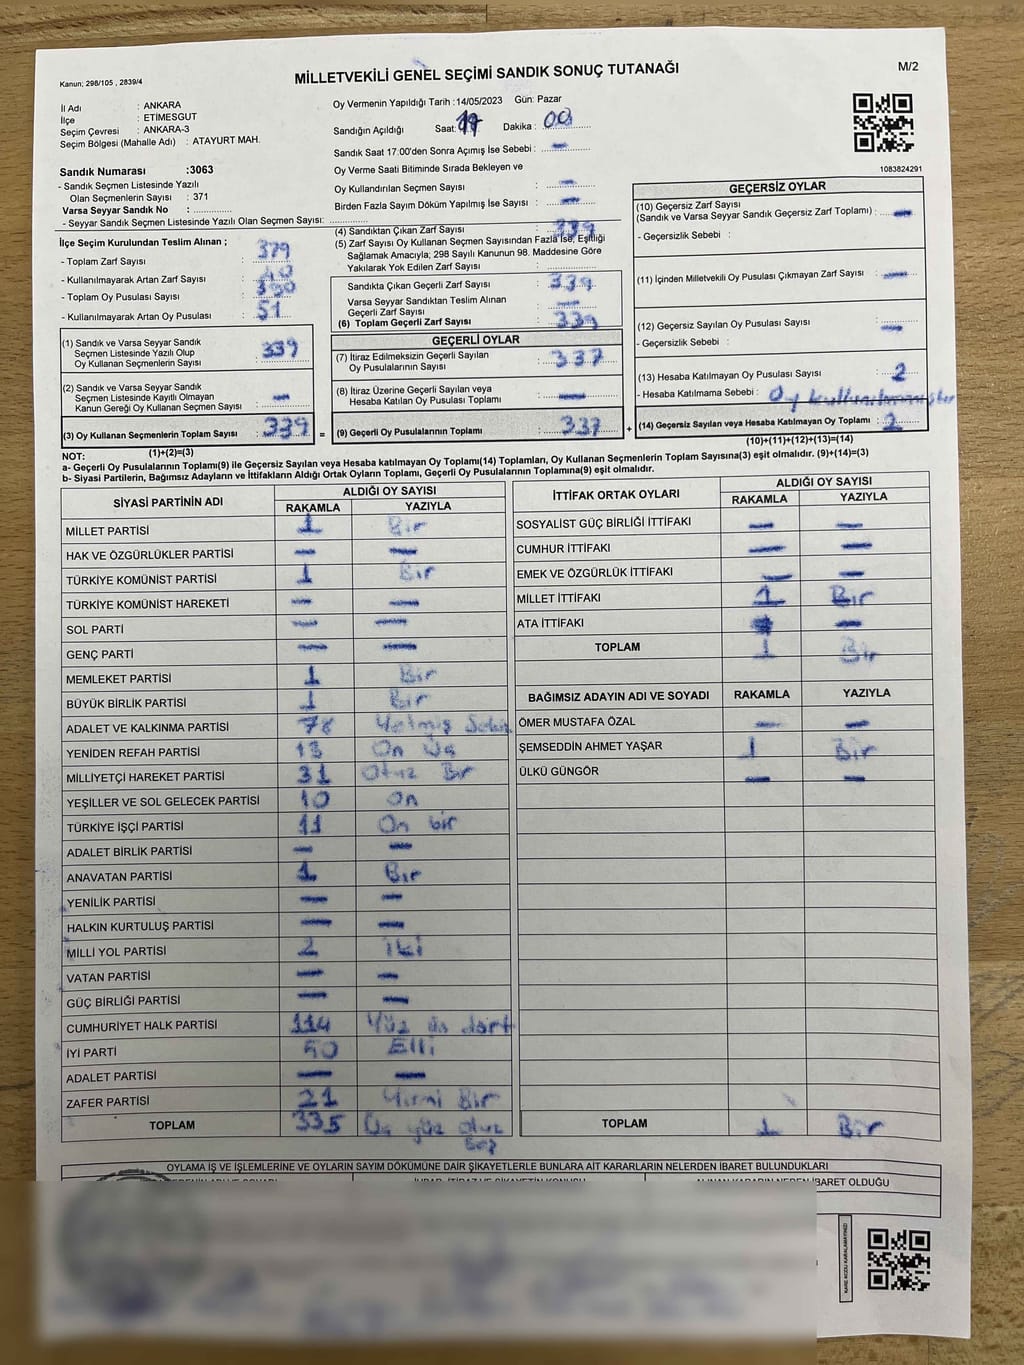 Kanun; 298/105 , 2839/4
MİLLETVEKİLİ GENEL SEÇİMİ SANDIK SONUÇ TUTANAĞI
M/2
İl Adı : ANKARA
İlçe : ETİMESGUT
Seçim Çevresi : ANKARA-3
Seçim Bölgesi (Mahalle Adı) : ATAYURT MAH.
Oy Vermenin Yapıldığı Tarih :14/05/2023 Gün: Pazar
Sandığın Açıldığı Saat: 17 Dakika : 00
Sandık Saat 17.00'den Sonra Açımış İse Sebebi : —
Oy Verme Saati Bitiminde Sırada Bekleyen ve
Oy Kullandırılan Seçmen Sayısı : —
Birden Fazla Sayım Döküm Yapılmış İse Sayısı : —
1083824291
Sandık Numarası :3063
- Sandık Seçmen Listesinde Yazılı
Olan Seçmenlerin Sayısı : 371
Varsa Seyyar Sandık No :
- Seyyar Sandık Seçmen Listesinde Yazılı Olan Seçmen Sayısı:
İlçe Seçim Kurulundan Teslim Alınan ;
- Toplam Zarf Sayısı : 379
- Kullanılmayarak Artan Zarf Sayısı : 40
- Toplam Oy Pusulası Sayısı : 390
- Kullanılmayarak Artan Oy Pusulası : 51
(1) Sandık ve Varsa Seyyar Sandık
Seçmen Listesinde Yazılı Olup
Oy Kullanan Seçmenlerin Sayısı : 339
(2) Sandık ve Varsa Seyyar Sandık
Seçmen Listesinde Kayıtlı Olmayan
Kanun Gereği Oy Kullanan Seçmen Sayısı : —
(3) Oy Kullanan Seçmenlerin Toplam Sayısı : 339 =
(1)+(2)=(3)
(4) Sandıktan Çıkan Zarf Sayısı : 339
(5) Zarf Sayısı Oy Kullanan Seçmen Sayısından Fazla İse, Eşitliği
Sağlamak Amacıyla; 298 Sayılı Kanunun 98. Maddesine Göre
Yakılarak Yok Edilen Zarf Sayısı :
Sandıkta Çıkan Geçerli Zarf Sayısı : 339
Varsa Seyyar Sandıktan Teslim Alınan
Geçerli Zarf Sayısı : —
(6) Toplam Geçerli Zarf Sayısı : 339
GEÇERLİ OYLAR
(7) İtiraz Edilmeksizin Geçerli Sayılan
Oy Pusulalarının Sayısı : 337
(8) İtiraz Üzerine Geçerli Sayılan veya
Hesaba Katılan Oy Pusulası Toplamı : —
(9) Geçerli Oy Pusulalarının Toplamı : 337 +
GEÇERSİZ OYLAR
(10) Geçersiz Zarf Sayısı
(Sandık ve Varsa Seyyar Sandık Geçersiz Zarf Toplamı) : —
- Geçersizlik Sebebi :
(11) İçinden Milletvekili Oy Pusulası Çıkmayan Zarf Sayısı : —
(12) Geçersiz Sayılan Oy Pusulası Sayısı : —
- Geçersizlik Sebebi :
(13) Hesaba Katılmayan Oy Pusulası Sayısı : 2
- Hesaba Katılmama Sebebi : Oy kullanılmamıştır
(14) Geçersiz Sayılan veya Hesaba Katılmayan Oy Toplamı : 2
(10)+(11)+(12)+(13)=(14)
NOT:
a- Geçerli Oy Pusulalarının Toplamı(9) ile Geçersiz Sayılan veya Hesaba katılmayan Oy Toplamı(14) Toplamları, Oy Kullanan Seçmenlerin Toplam Sayısına(3) eşit olmalıdır. (9)+(14)=(3)
b- Siyasi Partilerin, Bağımsız Adayların ve İttifakların Aldığı Ortak Oyların Toplamı, Geçerli Oy Pusulalarının Toplamına(9) eşit olmalıdır.
SİYASİ PARTİNİN ADI ALDIĞI OY SAYISI
RAKAMLA YAZIYLA
MİLLET PARTİSİ 1 Bir
HAK VE ÖZGÜRLÜKLER PARTİSİ — —
TÜRKİYE KOMÜNİST PARTİSİ 1 Bir
TÜRKİYE KOMÜNİST HAREKETİ — —
SOL PARTİ — —
GENÇ PARTİ — —
MEMLEKET PARTİSİ 1 Bir
BÜYÜK BİRLİK PARTİSİ 1 Bir
ADALET VE KALKINMA PARTİSİ 78 Yetmiş Sekiz
YENİDEN REFAH PARTİSİ 13 On Üç
MİLLİYETÇİ HAREKET PARTİSİ 31 Otuz Bir
YEŞİLLER VE SOL GELECEK PARTİSİ 10 On
TÜRKİYE İŞÇİ PARTİSİ 11 On bir
ADALET BİRLİK PARTİSİ — —
ANAVATAN PARTİSİ 1 Bir
YENİLİK PARTİSİ — —
HALKIN KURTULUŞ PARTİSİ — —
MİLLİ YOL PARTİSİ 2 İki
VATAN PARTİSİ — —
GÜÇ BİRLİĞİ PARTİSİ — —
CUMHURİYET HALK PARTİSİ 114 Yüz on dört
İYİ PARTİ 50 Elli
ADALET PARTİSİ — —
ZAFER PARTİSİ 21 Yirmi Bir
TOPLAM 335 Üç yüz otuz Beş
İTTİFAK ORTAK OYLARI ALDIĞI OY SAYISI
RAKAMLA YAZIYLA
SOSYALİST GÜÇ BİRLİĞİ İTTİFAKI — —
CUMHUR İTTİFAKI — —
EMEK VE ÖZGÜRLÜK İTTİFAKI — —
MİLLET İTTİFAKI 1 Bir
ATA İTTİFAKI —
TOPLAM 1 Bir
BAĞIMSIZ ADAYIN ADI VE SOYADI RAKAMLA YAZIYLA
ÖMER MUSTAFA ÖZAL — —
ŞEMSEDDİN AHMET YAŞAR 1 Bir
ÜLKÜ GÜNGÖR — —
TOPLAM 1 Bir
OYLAMA İŞ VE İŞLEMLERİNE VE OYLARIN SAYIM DÖKÜMÜNE DAİR ŞİKAYETLERLE BUNLARA AİT KARARLARIN NELERDEN İBARET BULUNDUKLARI
ALINAN KARARIN NEDEN İBARET OLDUĞU
KARE KODU KARALAMAYINIZ!